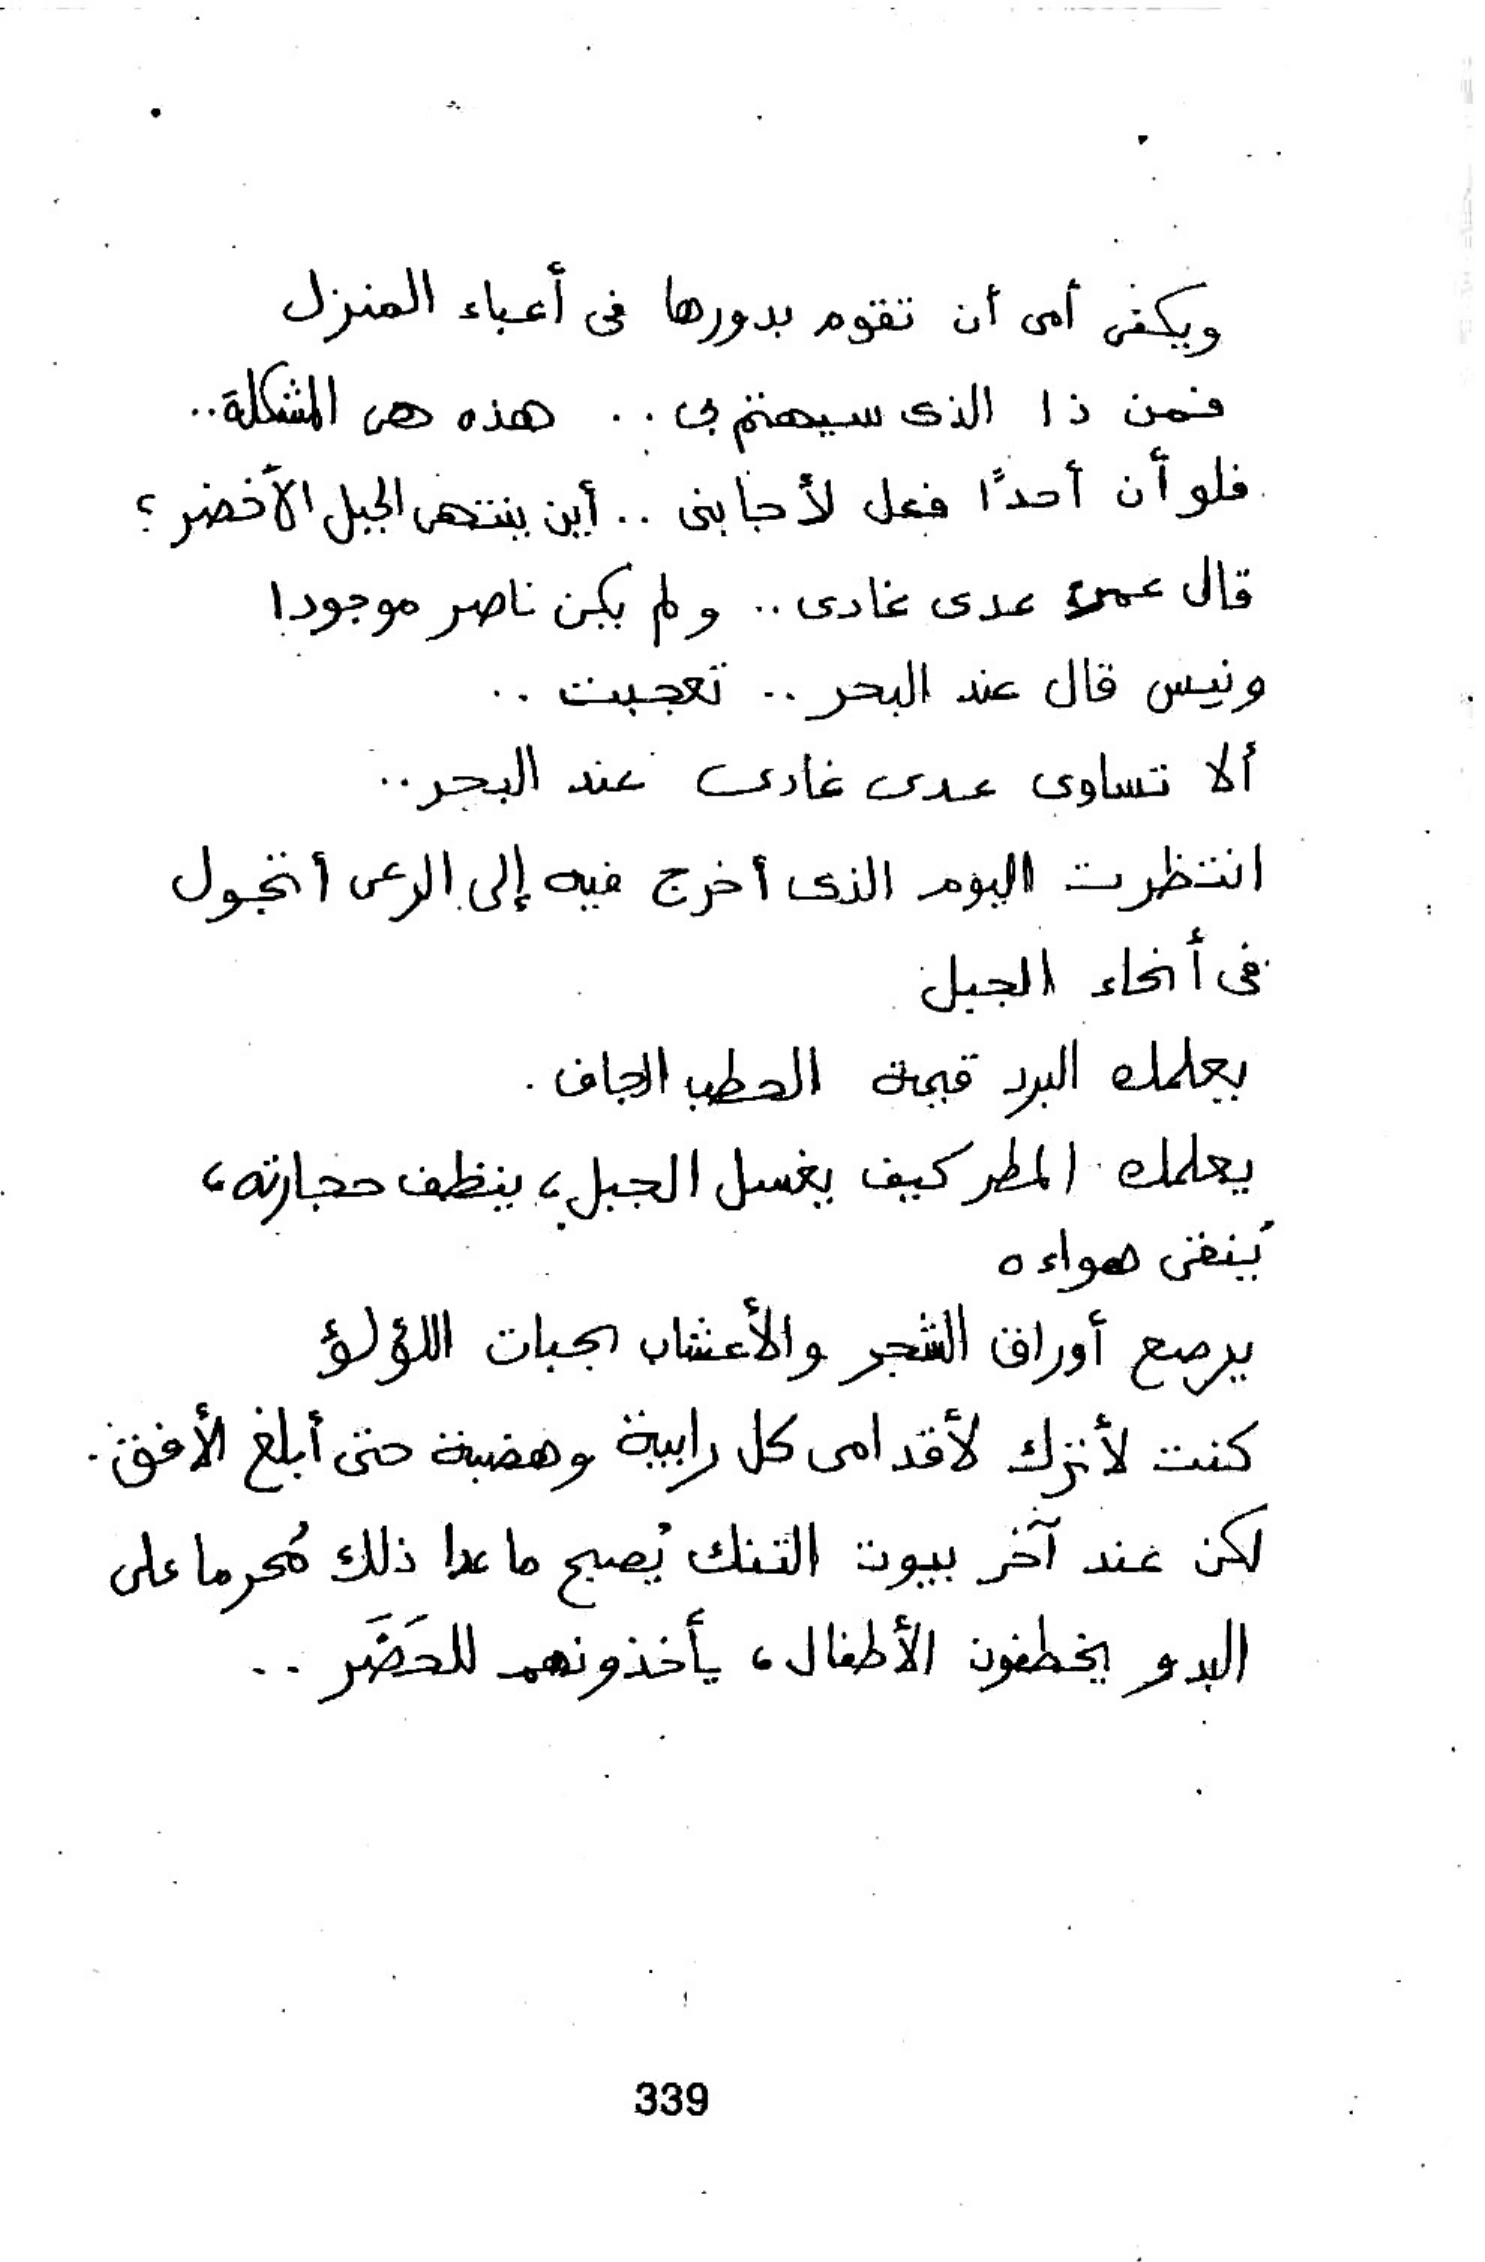 ويكفى أمى أن تقوم بدورها فى أعباء المنزل
فمن ذا الذى سيهتم بى .. هذه هى المشكلة ..
فلو أن أحدًا فعل لأجابنى .. أين ينتهى الجبل الأخضر ؟
قال عدى غادى .. ولم يكن ناصر موجودا
ونيس قال عند البحر .. تعجبت ..
ألا تساوى عدى غادى عند البحر ..
انتظرت اليوم الذى أخرج فيه إلى الرعى أتجول
فى أنحاء الجبل
يعلمك البرد قيمة الحطب الجاف .
يعلمك المطر كيف يغسل الجبل ، ينظف حجارته ،
يُنقى هواءه
يرصع أوراق الشجر والأعشاب بحبات اللؤلؤ
كنت لأترك لأقدامى كل رابية وهضبة حتى أبلغ الأفق .
لكن عند آخر بيوت التنك يُصبح ما عدا ذلك مُحرما على
البدو يخطفون الأطفال ، يأخذونهم للحَضَر ..
339